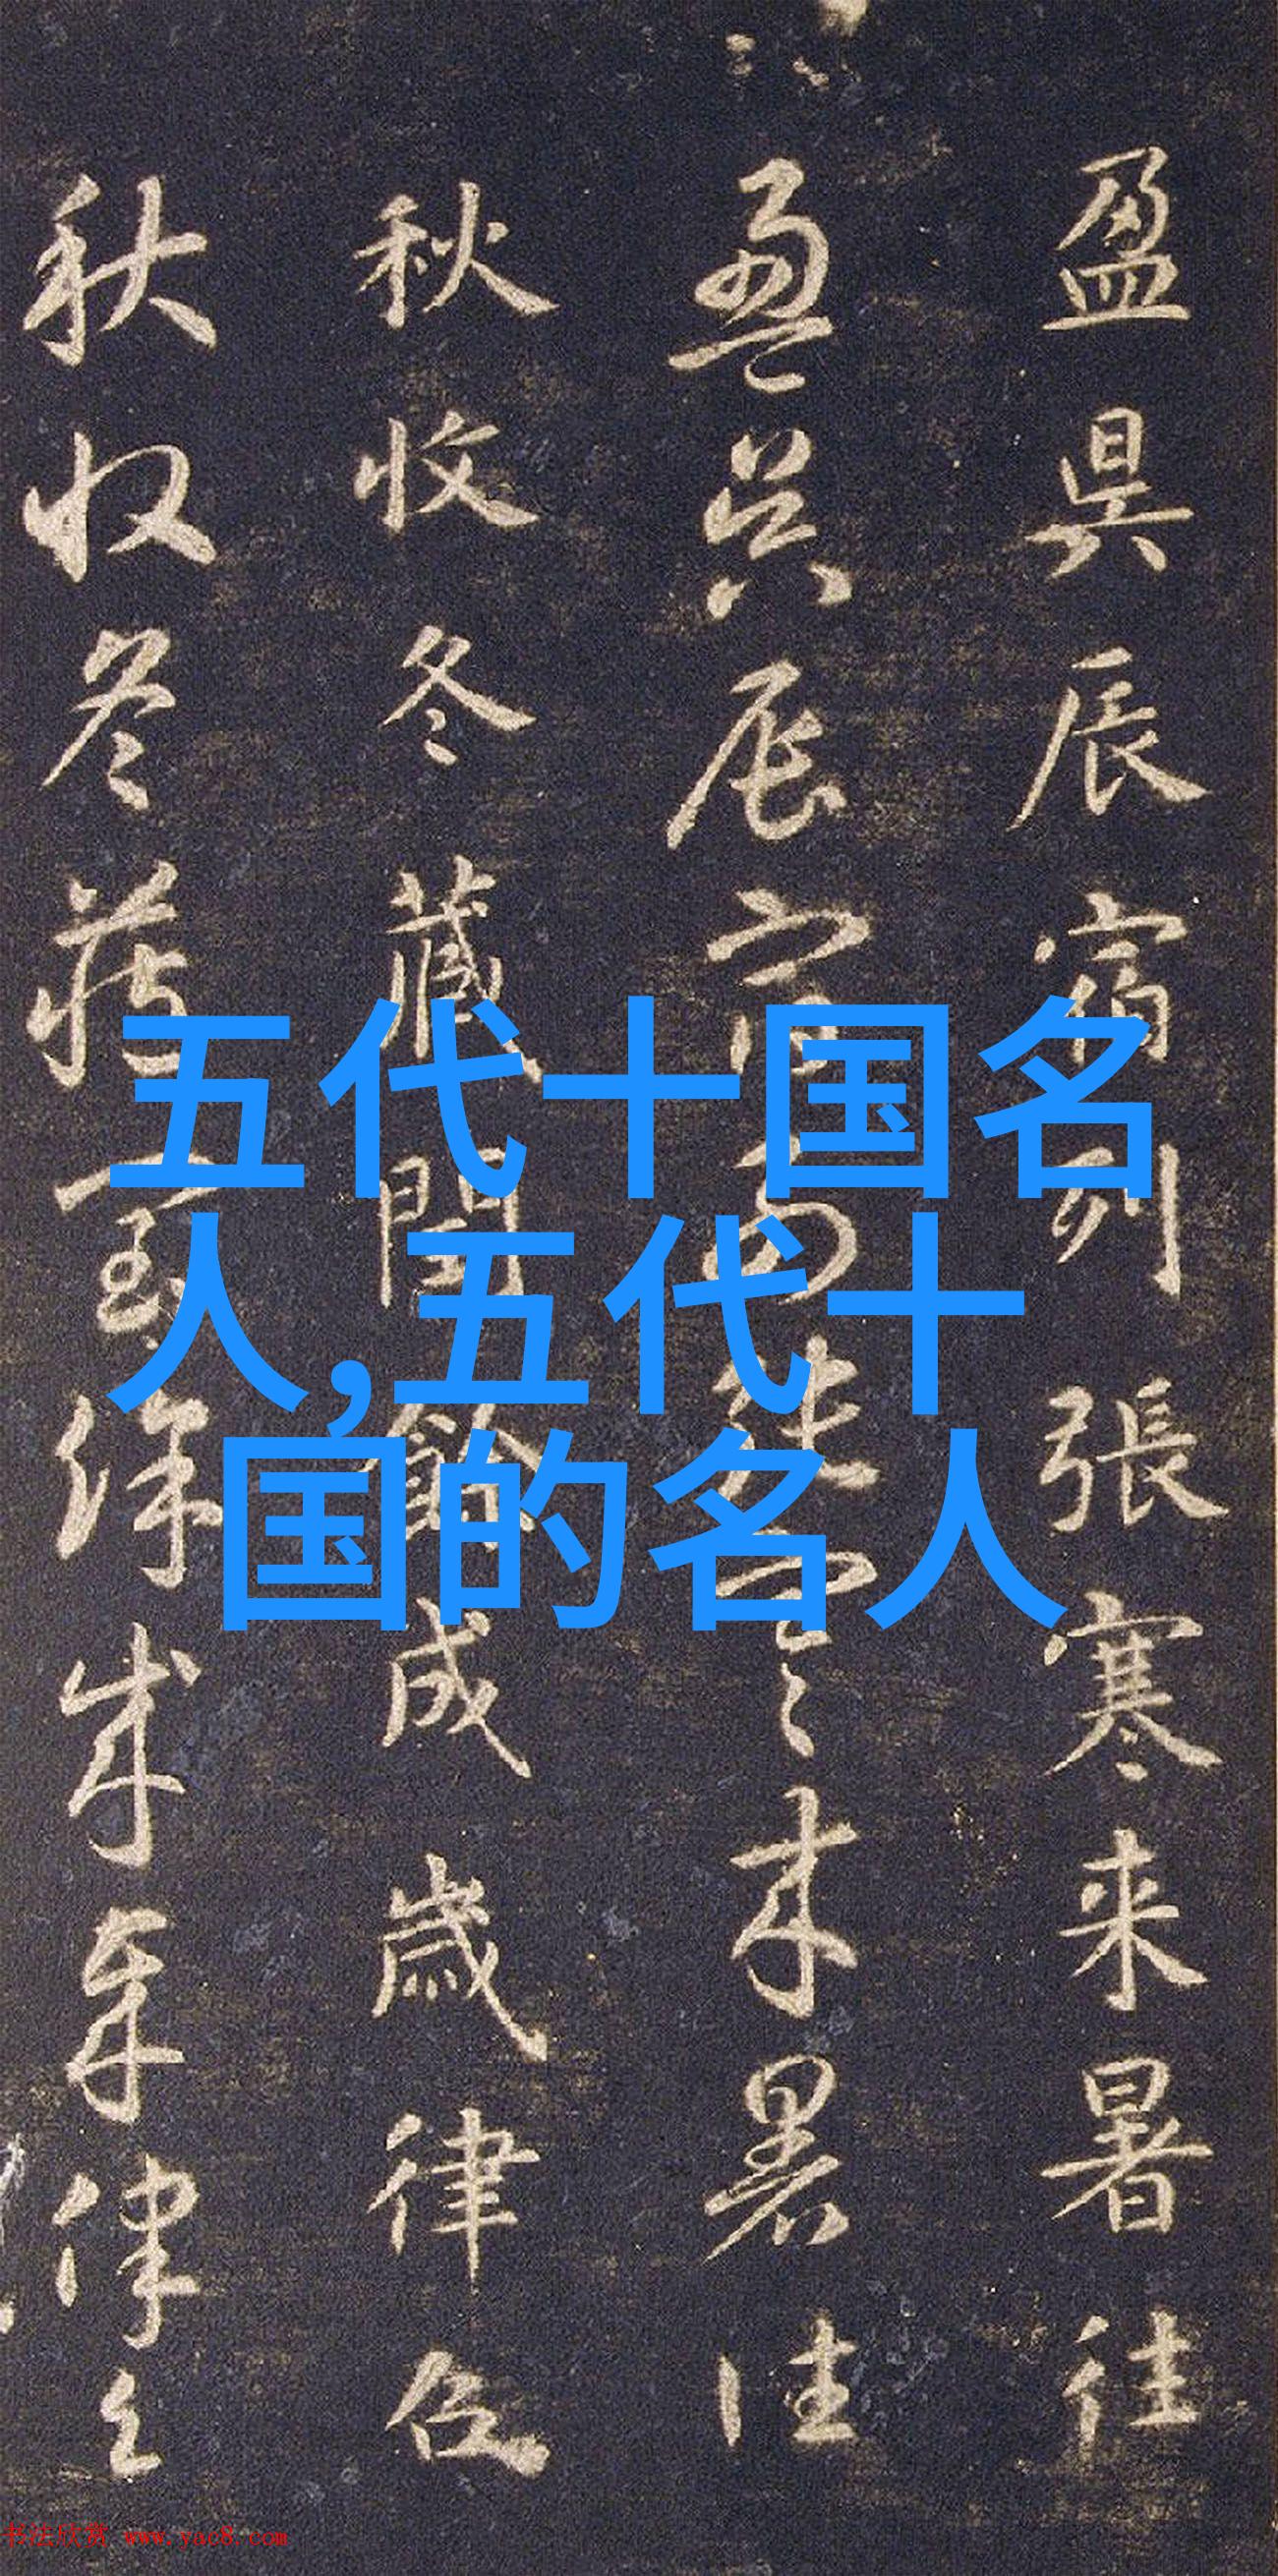 盈昃辰宿列張寒来暑往
盈昃辰宿列張寒来暑往
秋收冬藏閏餘成歲律召
秋收冬藏閏餘成歲律召
五代十国名
人,五代十
国的名人
书法欣赏 www.yac8.com